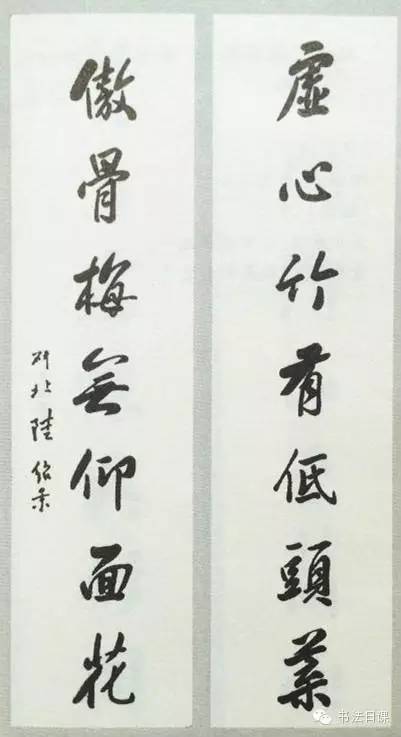 虛心竹有低頭葉
傲骨梅無仰面花
北陸
书法日课